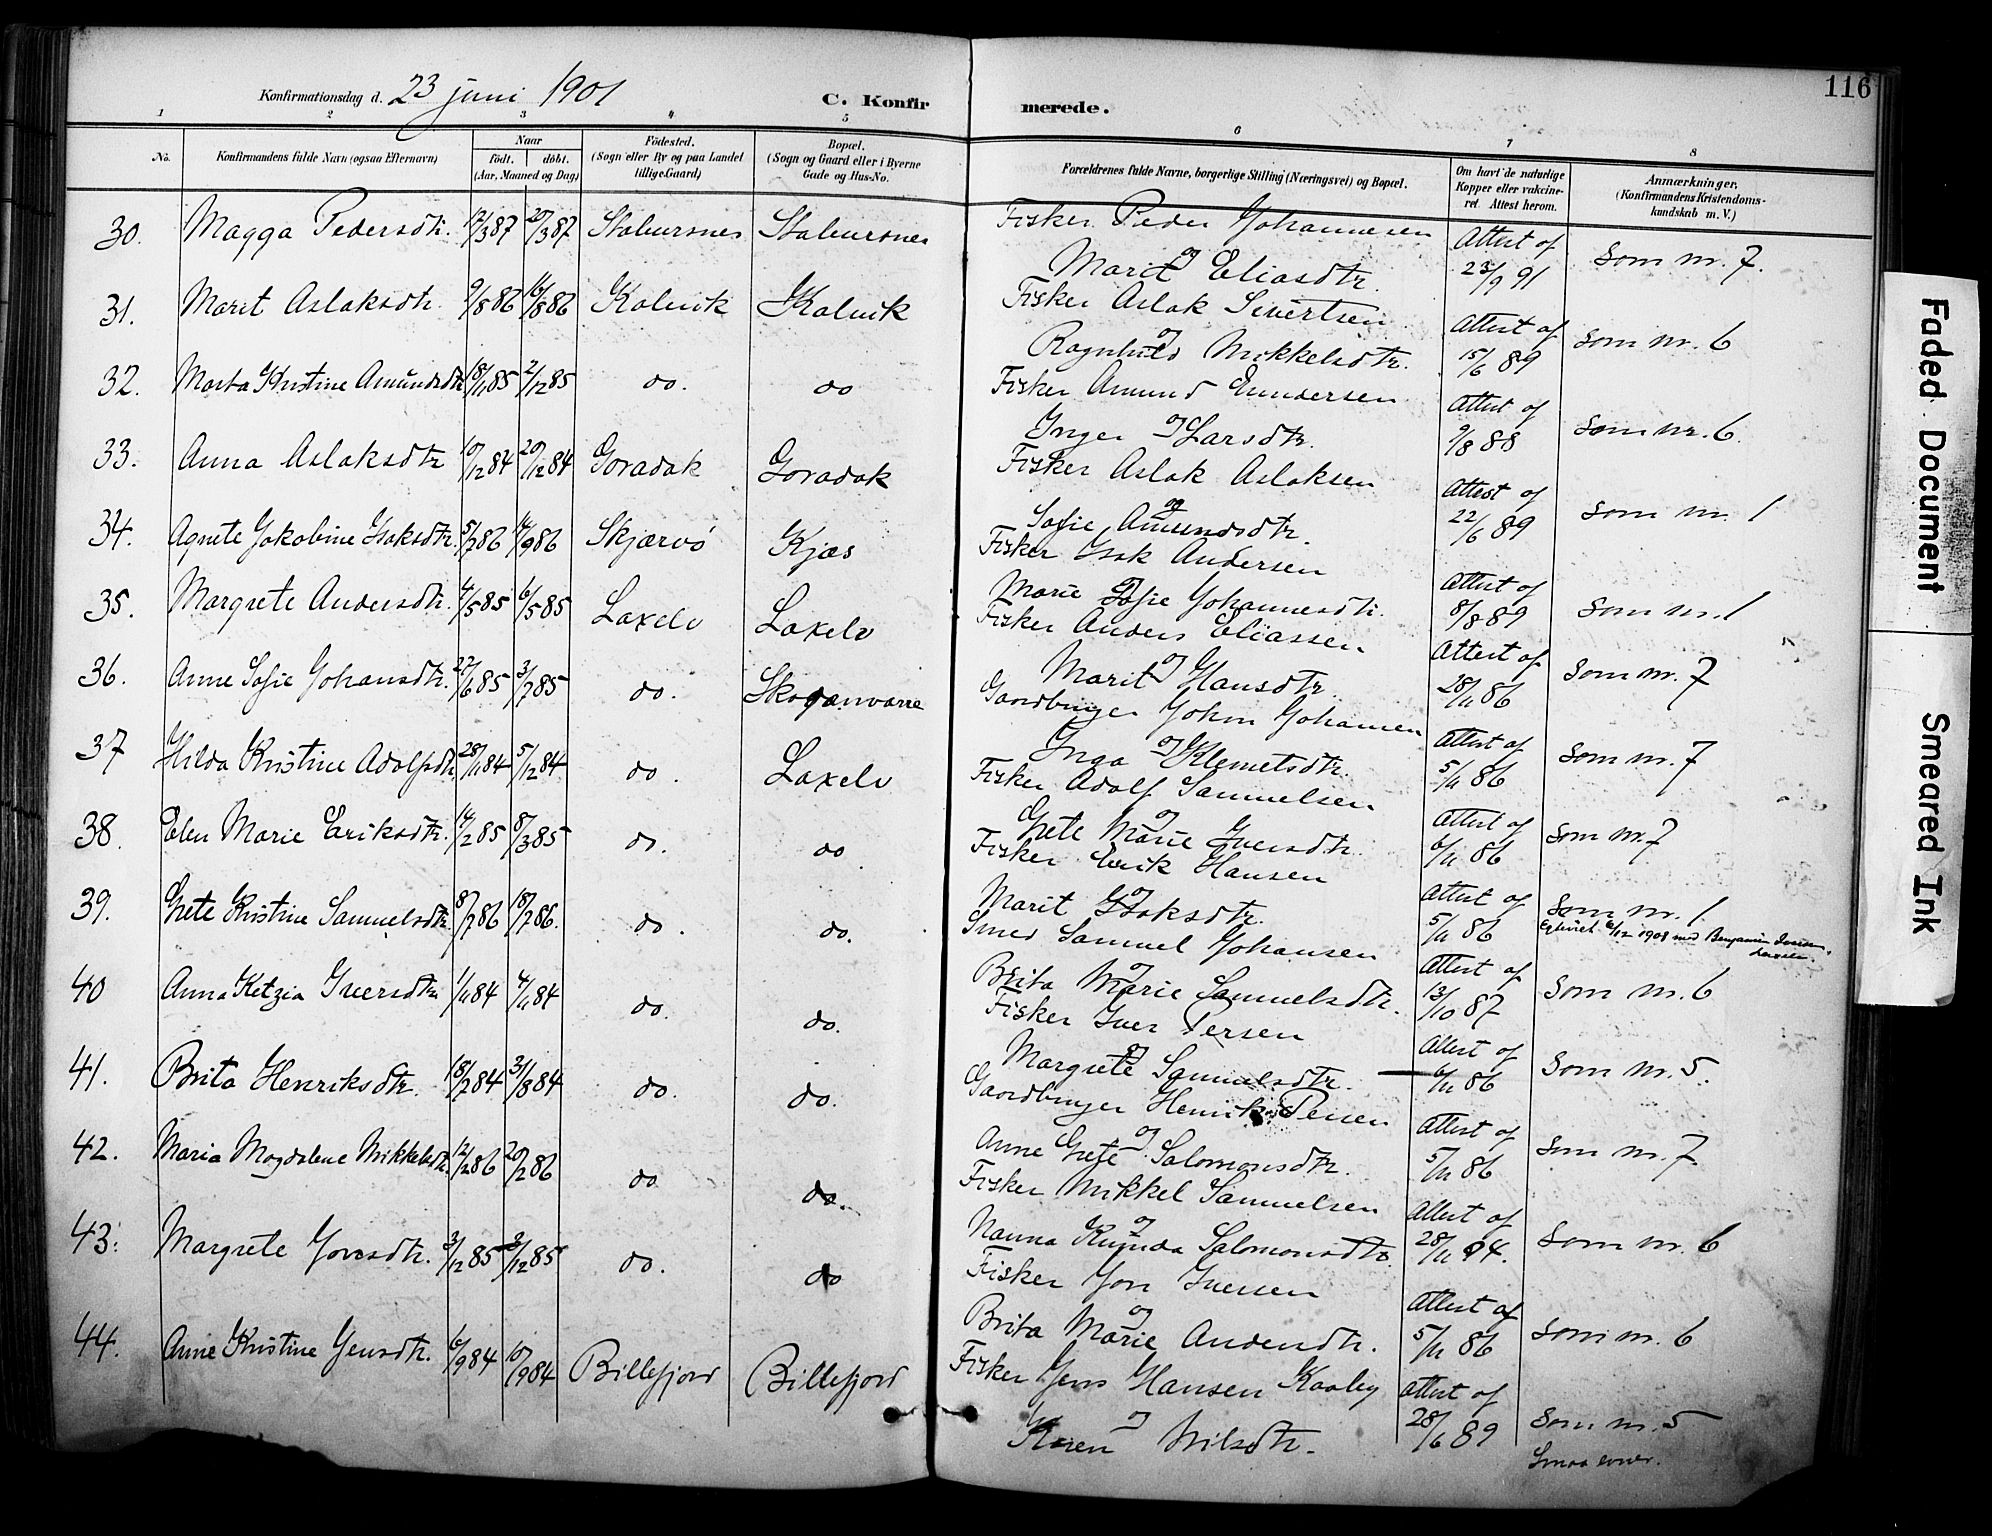 Konfirmationsdag d. 23 juni 1901
C. Konfirmerede.
116
1 2 3 4 5 6 7 8
No.
Konfirmandens fulde Navn (ogsaa Efternavn)
Naar
født. døbt.
(Aar, Maaned og Dag)
Fødested.
(Sogn eller By og paa Landet
tillige Gaard)
Bopæl.
(Sogn og Gaard eller i Byerne
Gade og Hus-No.
Forældrenes fulde Navne, borgerlige Stilling (Næringsvei) og Bopæl.
Om havt de naturlige
Kopper eller vaccine-
ret. Attest herom.
Anmærkninger,
(Konfirmandens Kristendoms-
kundskab m. V.)
30. Magga Pedersdtr. 12/3 87 20/3 87 Stabursnes Stabursnes Fisker Peder Johannesen
og
Marit Eliasdtr. Attest af 23/9 91 Som nr. 7.
31. Marit Aslaksdtr. 9/8 86 16/8 86 Kolvik Kolvik Fisker Aslak Sivertsen
og
Ragnhild Mikkelsdtr. Attest af 15/6 89 Som nr. 6
32. Marta Kristine Amundsdtr 18/11 85 2/12 85 do. do Fisker Amund Gundersen
og
Inger Larsdtr. Attest af 9/8 88 Som nr. 6.
33. Anna Aslaksdtr 10/12 84 20/12 84 Goradak Goradak Fisker Aslak Aslaksen
og
Sofie Amundsdtr. Attest af 22/6 89 Som nr. 1
34. Agnete Jakobine Isaksdtr. 5/7 86 14/9 86 Skjærvö Kjæs Fisker Isak Andersen
og
Marie Sofie Johannesdtr. Attest af 8/8 89 Som nr. 1
35. Margrete Andersdtr. 4/5 85 6/5 85 Laxelv Laxelv Fisker Anders Eliassen
og
Marit Hansdtr. Attest af 28/11 86 Som nr. 7
36. Anne Sofie Johansdtr. 27/6 85 3/7 85 do. Skoganvarre Gaardbruger Johan Johansen
og
Inga Klemetsdtr. Attest af 5/11 86 Som nr. 7
37 Hilda Kristine Adolfsdtr. 28/11 84 5/12 84. do. Laxelv Fisker Adolf Samuelsen
og
Grete Marie Iversdtr. Attest af 6/11 86 Som nr. 7
38. Elen Marie Eriksdtr. 14/2 85 8/3 85 do. do Fisker Erik Hansen
og
Marit Isaksdtr. Attest af 5/11 86 Som nr. 1.
Egteviet 6/12 1908 med Benjamin
39. Grete Kristine Samuelsdtr. 8/7 86 18/7 86. do. do. Smed Samuel Johansen
og
Brita Marie Samuelsdtr. Attest af 13/10 87 Som nr. 6
40 Anna Ketzia Iversdtr. 1/11 84 4/11 84 do. do. Fisker Iver Persen
og
Margrete Samuelsdtr. Attest af 6/11 86 Som nr. 5.
41. Brita Henriksdtr. 18/7 84 31/8 84 do. do. Gaardbruger Henrik Persen
og
Anne Grete Salomonsdtr. Attest af 5/11 86 Som nr. 7.
42. Maria Magdalene Mikkelsdtr. 12/2 86 20/2 86 do do. Fisker Mikkel Samuelsen
og
Nanna Salomonsdtr. Attest af 28/11 94. Som nr. 6
43. Margrete Jonsdtr. 3/12 85 3/12 85 do. do Fisker Jon Iversen
og
Brita Marie Andersdtr. Attest af 5/11 86 Som nr. 6
44. Anne Kristine Jensdtr. 6/9 84 10/9 84 Billefjord Billefjord Fisker Jens Hansen Kaaby
og
Karen Nilsdtr. Attest af 28/6 89 Som nr. 5
Smaa evner.
Faded Document
Smeared Ink